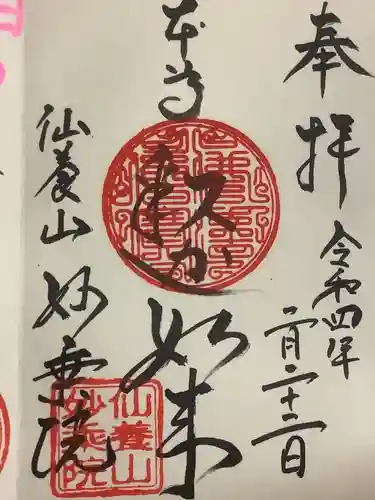 奉拝
令和四年
二月二十二日
本尊
釈迦如来
仙養山
妙乗院
仙養山
妙乗院